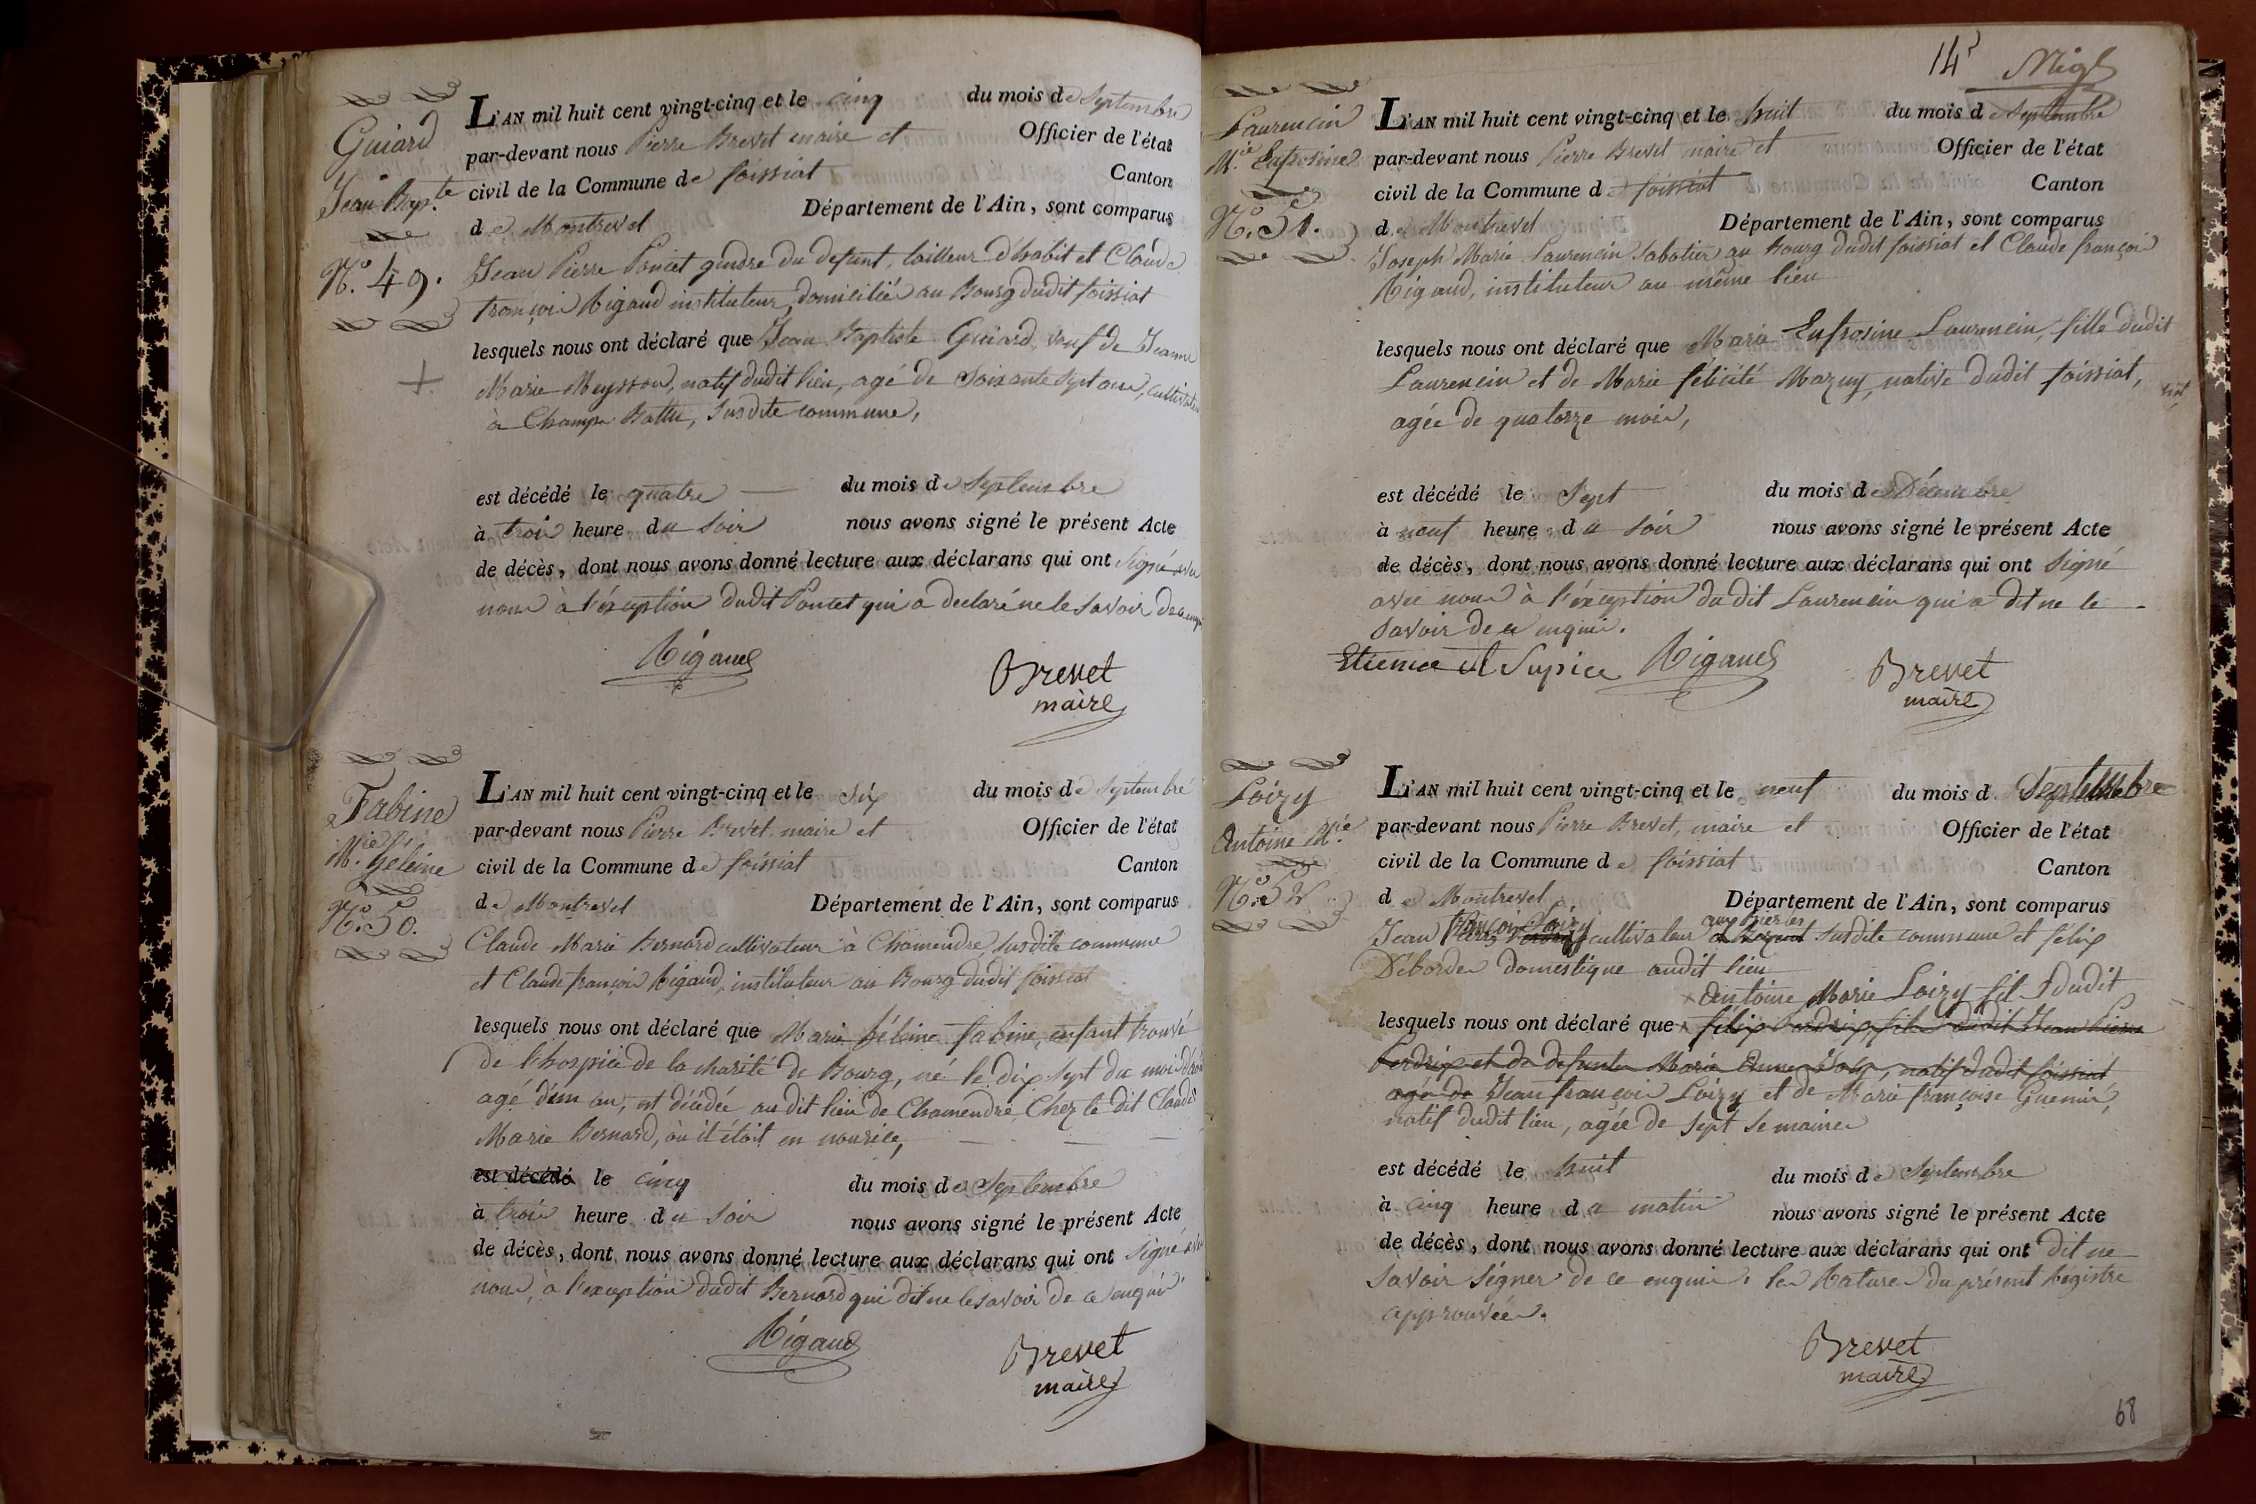 Guiard
Jean Bapte
No. 49.
L'AN mil huit cent vingt-cinq et le cinq du mois de Septembre
par-devant nous Pierre Brevet maire et Officier de l'état
civil de la Commune de foissiat Canton
de Montrevel Département de l'Ain, sont comparus
Jean Pierre Poncet gendre du defunt, tailleur d'habit et Claude
françois Rigaud instituteur, domicilié au Bourg dudit foissiat
lesquels nous ont déclaré que Jean Baptiste Guiard veuf de Jeanne
Marie Meysson, natif dudit lieu, agé de Soixante Sept ans, cultivateur
à Champ Battu, Susdite commune,
est décédé le quatre du mois de Septembre
à trois heure du Soir nous avons signé le présent Acte
de décès, dont nous avons donné lecture aux déclarans qui ont Signé avec
nous à l'éxception dudit Poncet qui a declaré ne le Savoir de ce enquis
Rigaud
Brevet
maire
Fabine
Mie héleine
No. 50.
L'AN mil huit cent vingt-cinq et le Six du mois de Septembre
par-devant nous Pierre Brevet maire et Officier de l'état
civil de la Commune de foissiat Canton
de Montrevel Département de l'Ain, sont comparus
Claude Marie Bernard cultivateur à Chamendre, Susdite commune
et Claude françois Rigaud, instituteur au Bourg dudit foissiat
lesquels nous ont déclaré que Marie héleine fabine, enfant trouvé
de l'hospice de la charité de Bourg, né le dix Sept du mois
agé d'un an, est décédée au dit lieu de Chamendre Chez le dit Claude
Marie Bernard, où il étoit en nourice,
est décédé le cinq du mois de Septembre
à trois heure du Soir nous avons signé le présent Acte
de décès, dont nous avons donné lecture aux déclarans qui ont Signé avec
nous, à l'exception dudit Bernard qui dit ne le Savoir de ce enquis
Rigaud
Brevet
maire
14
Laurencin
Mie Eufrosine
No. 51.
L'AN mil huit cent vingt-cinq et le huit du mois de Septembre
par-devant nous Pierre Brevet maire et Officier de l'état
civil de la Commune de foissiat Canton
de Montrevel Département de l'Ain, sont comparus
Joseph Marie Laurencin Sabotier au Bourg dudit foissiat et Claude françois
Rigaud, instituteur au même lieu
lesquels nous ont déclaré que Marie Eufrosine Laurencin, fille dudit
Laurencin et de Marie félicité Mazuy, native dudit foissiat,
agée de quatorze mois,
est décédé le Sept du mois de Décembre
à neuf heure du Soir nous avons signé le présent Acte
de décès, dont nous avons donné lecture aux déclarans qui ont Signé
avec nous à l'éxception dudit Laurencin qui a dit ne le
Savoir de ce enquis.
Rigaud
Brevet
maire
Loizy
Antoine Mie
No. 52
L'AN mil huit cent vingt-cinq et le neuf du mois d Septembre
par-devant nous Pierre Brevet, maire et Officier de l'état
civil de la Commune de foissiat Canton
de Montrevel Département de l'Ain, sont comparus
Jean françois Loizy cultivateur Susdite commune et félix
Deborde domestique audit lieu
Antoine Marie Loizy fils dudit
lesquels nous ont déclaré que félix Perdrix fils dudit Jean Pierre
Perdrix et de defunte Marie Anne natif dudit foissiat
agé de Jean françois Loizy et de Marie françoise Guemin,
natif dudit lieu, agée de Sept Semaines
est décédé le huit du mois de Septembre
à cinq heure du matin nous avons signé le présent Acte
de décès, dont nous avons donné lecture aux déclarans qui ont dit ne
Savoir Signer de ce enquis. les Rature du présent Régistre
approuvées.
Brevet
maire
68